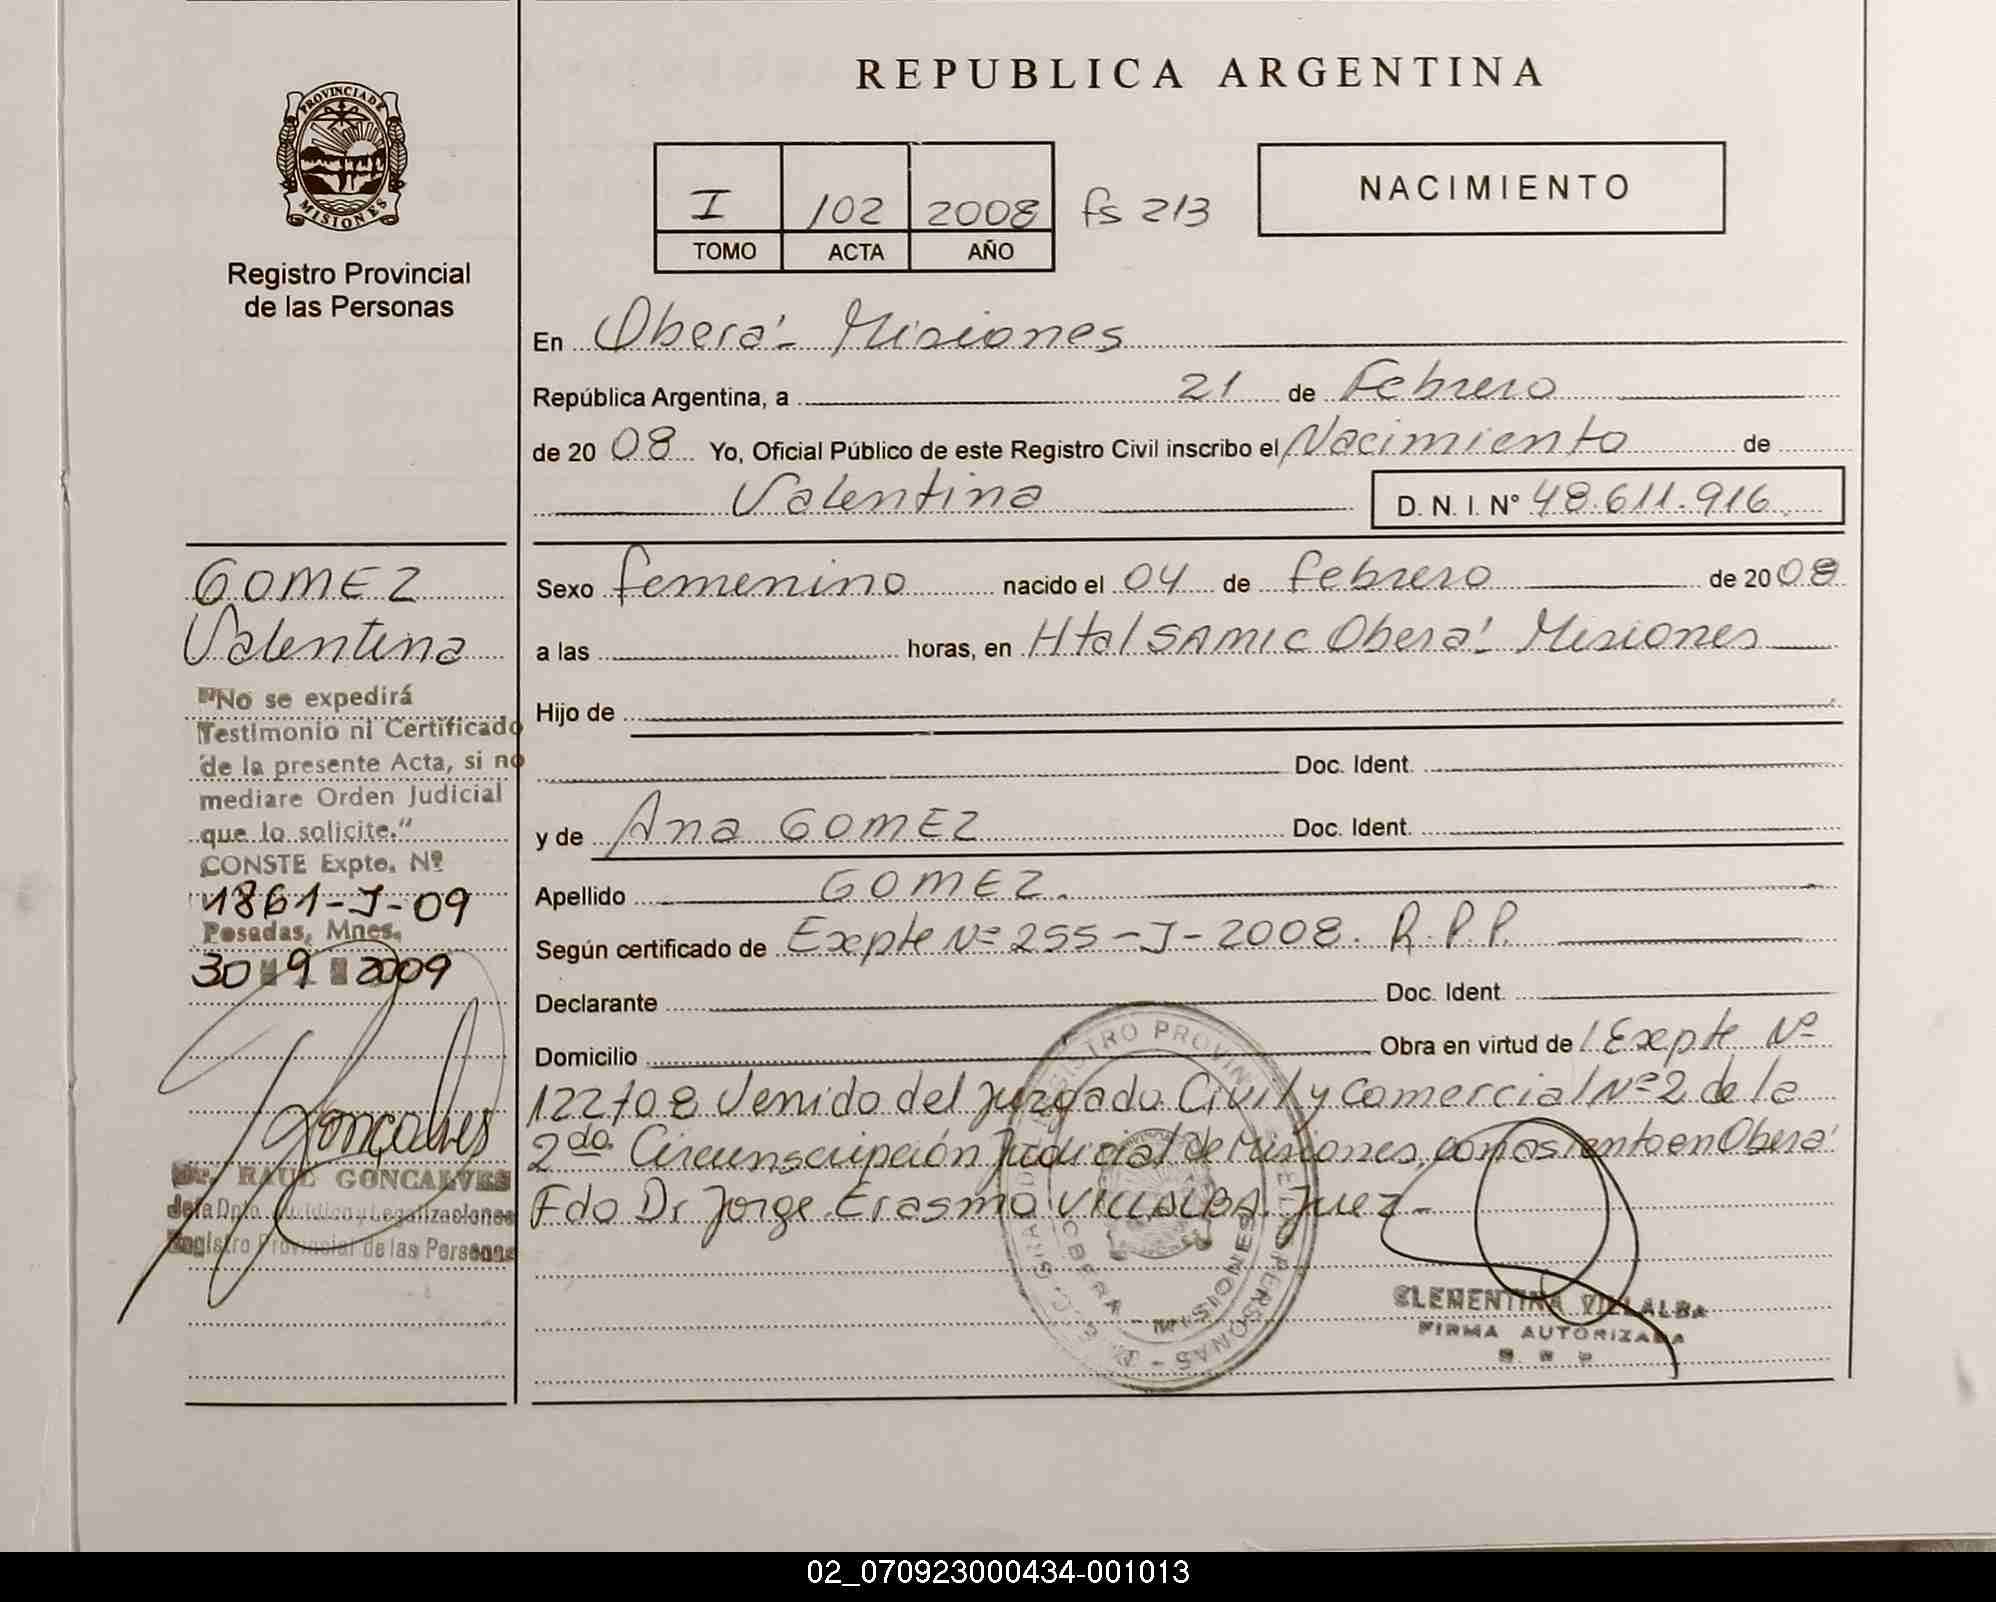 REPUBLICA ARGENTINA
PROVINCIA DE
MISIONES
Registro Provincial
de las Personas
I 102 2008 fs 213
TOMO ACTA AÑO
NACIMIENTO
En Oberá - Misiones
República Argentina, a 21 de Febrero
de 2008 Yo, Oficial Público de este Registro Civil inscribo el Nacimiento de
Valentina D. N. I. N° 48.611.916
GOMEZ
Valentina
"No se expedirá
Testimonio ni Certificado
de la presente Acta, si no
mediare Orden Judicial
que lo solicite."
CONSTE Expte. Nº
1861-J-09
Posadas, Mnes.
30 9 2009
Goncalves
Dr. RAUL GONCALVES
Jefe Dpto. Jurídico y Legalizaciones
Registro Provincial de las Personas
Sexo femenino nacido el 04 de febrero de 2008
a las horas, en Htal SAMIC Oberá - Misiones
Hijo de
Doc. Ident.
y de Ana GOMEZ Doc. Ident.
Apellido GOMEZ.
Según certificado de Expte Nº 255-J-2008. R.P.P.
Declarante Doc. Ident.
Domicilio Obra en virtud de / Expte Nº
122/08 Venido del Juzgado Civil y Comercial Nº 2 de la
2da. Circunscripción Judicial de Misiones, con asiento en Oberá
Fdo Dr Jorge Erasmo VILLALBA. Juez -
OBERA - MISIONES
CLEMENTINA VILLALBA
FIRMA AUTORIZADA
02_070923000434-001013